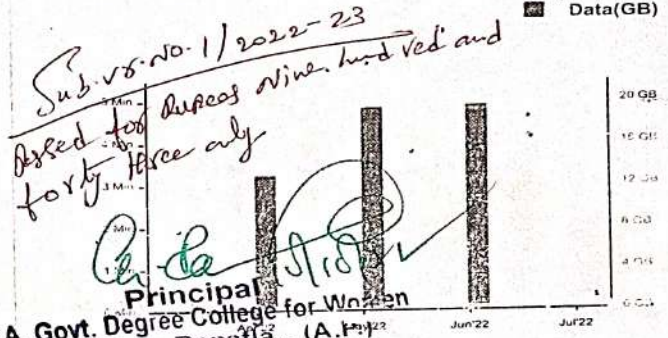 Data(GB)
Sub.vr.No.1/2022-23
Passed for Rupees Nine hundred and
forty three only
5 Min
3 Min
2 Min
20 GB
16 GB
12 GB
8 GB
4 GB
0 GB
Principal
A. Govt. Degree College for Women
(A.P.)
May'22
Jun'22
Jul'22